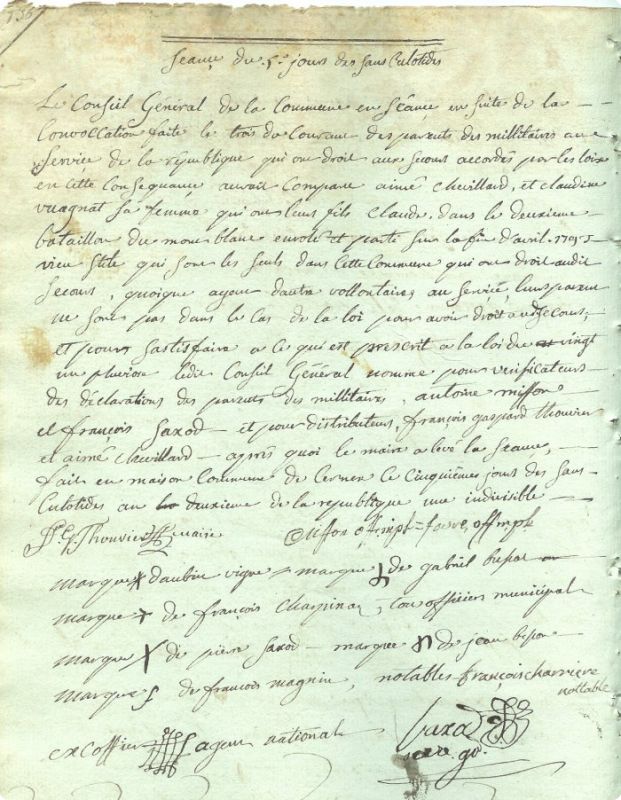 136
Séance du 5.e jours des sans Culotides
Le Conseil Général de la Commune en Séance en suite de la
Convoccation faite le trois du Courant des parents des millitaires au
Service de la république qui on droit aux secours accordés par les loix
en cette Consequance auroit Comparu aimé chevillard, et claudine
vuagnat sa femme qui ont leurs fils Claude, dans le deuxieme
bataillon du mont blanc enrolé et parti sur la fin d'avril 1793
vieu stile qui sont les seuls dans Cette Commune qui on droit audit
Secours, quoique ayant d'autre vollontaires au service, leurs parens
ne sont pas dans le cas de la loi pour avoir droit audt secours,
et pour sattisfaire a ce qui est prescrit a la loi du vingt
un pluviose ledit Conseil Général nomme pour verificateurs
des déclarations des parents des millitaires, antoine misson
et françois Saxod et pour distributeurs, françois gaspard thouvier
et aimé chevillard – après quoi le maire a levé la séance,
fait en maison Commune de Cernex le Cinquième jours des Sans
Culotides an deuxieme de la republique une indivisible
f. G. Thouvier maire offmpl = favre, offmpl
marque X d'aubin vigne marque de gabriel
marque + de françois Chappinaz, tous officiers municipal
marque X de pierre Saxod – marque de jean
marque de francois magnin, notables françois charriere
nottable
excoffier agent national
Saxod
secre. go.